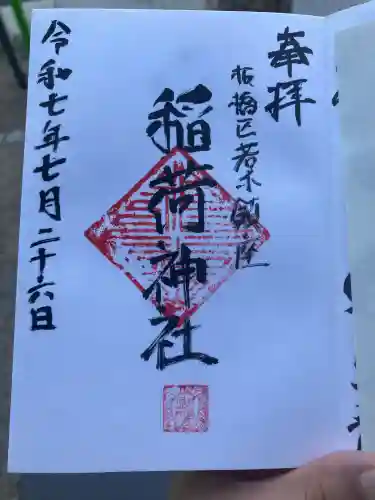 奉拝
板橋区若木鎮座
稲荷神社
令和七年七月二十六日